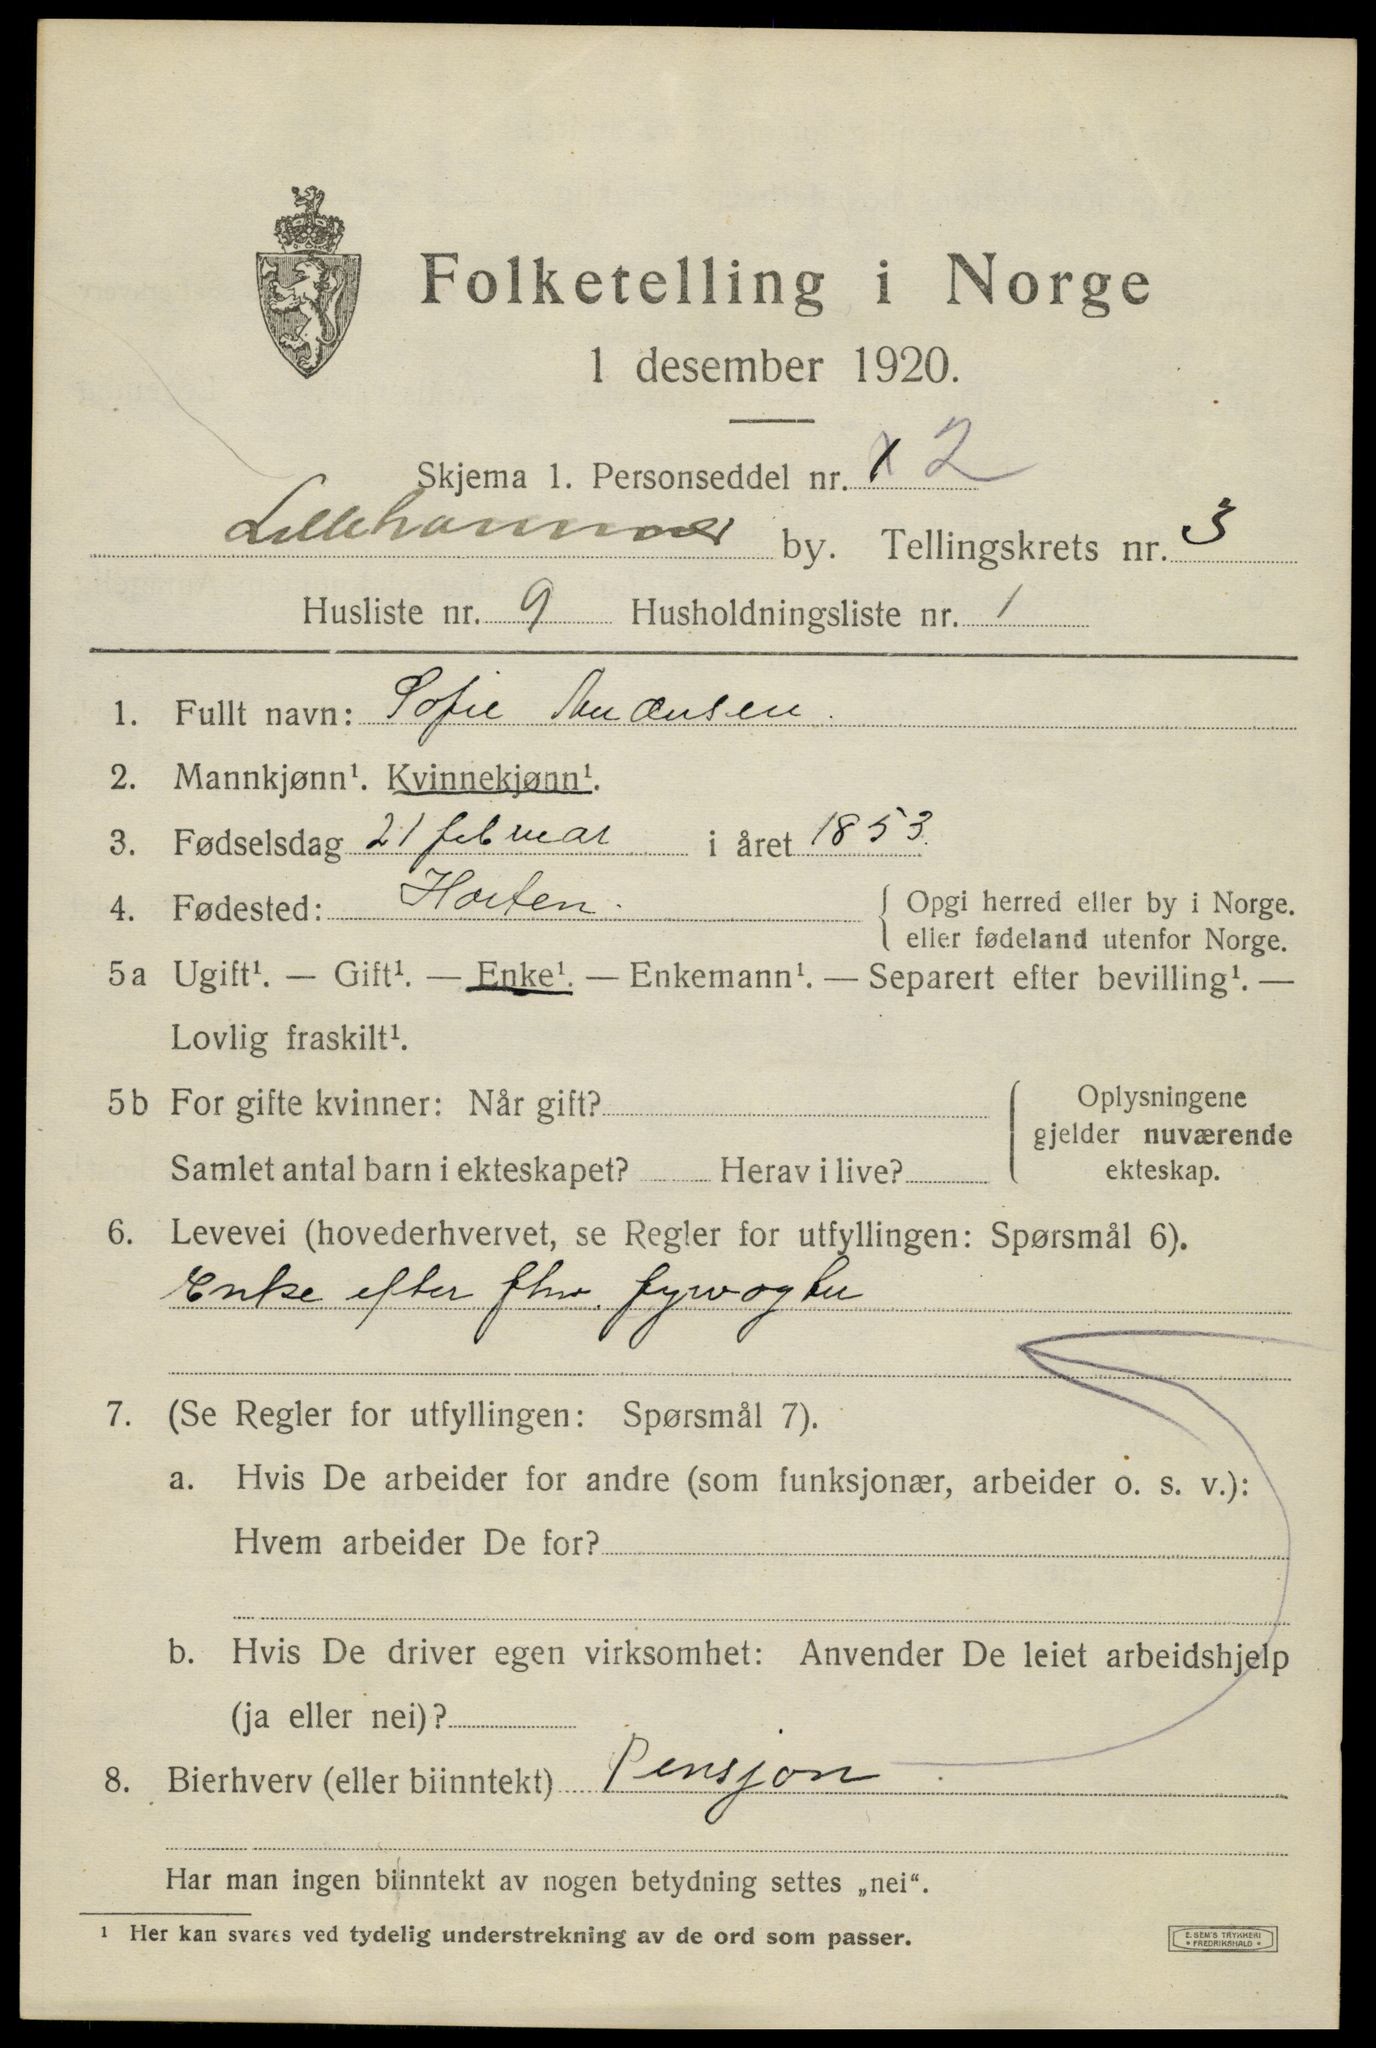 Folketelling i Norge
1 desember 1920.
Skjema 1. Personseddel nr. 2
Lillehammer by. Tellingskrets nr. 3
Husliste nr. 9 Husholdningsliste nr. 1
1. Fullt navn: Sofie
2. Mannkjønn¹. Kvinnekjønn¹.
3. Fødselsdag 21 februar i året 1853.
4. Fødested: Horten. { Opgi herred eller by i Norge.
eller fødeland utenfor Norge.
5a Ugift¹. — Gift¹. — Enke¹. — Enkemann¹. — Separert efter bevilling¹. —
Lovlig fraskilt¹.
5b For gifte kvinner: Når gift?
Samlet antal barn i ekteskapet? Herav i live?
Oplysningene
gjelder nuværende
ekteskap.
6. Levevei (hovederhvervet, se Regler for utfyllingen: Spørsmål 6).
Enke efter fhv. fyrvogter
7. (Se Regler for utfyllingen: Spørsmål 7).
a. Hvis De arbeider for andre (som funksjonær, arbeider o. s. v.):
Hvem arbeider De for?
b. Hvis De driver egen virksomhet: Anvender De leiet arbeidshjelp
(ja eller nei)?
8. Bierhverv (eller biinntekt) Pensjon
Har man ingen biinntekt av nogen betydning settes „nei“.
¹ Her kan svares ved tydelig understrekning av de ord som passer.
E. SEM'S TRYKKERI
• FREDRIKSHALD •